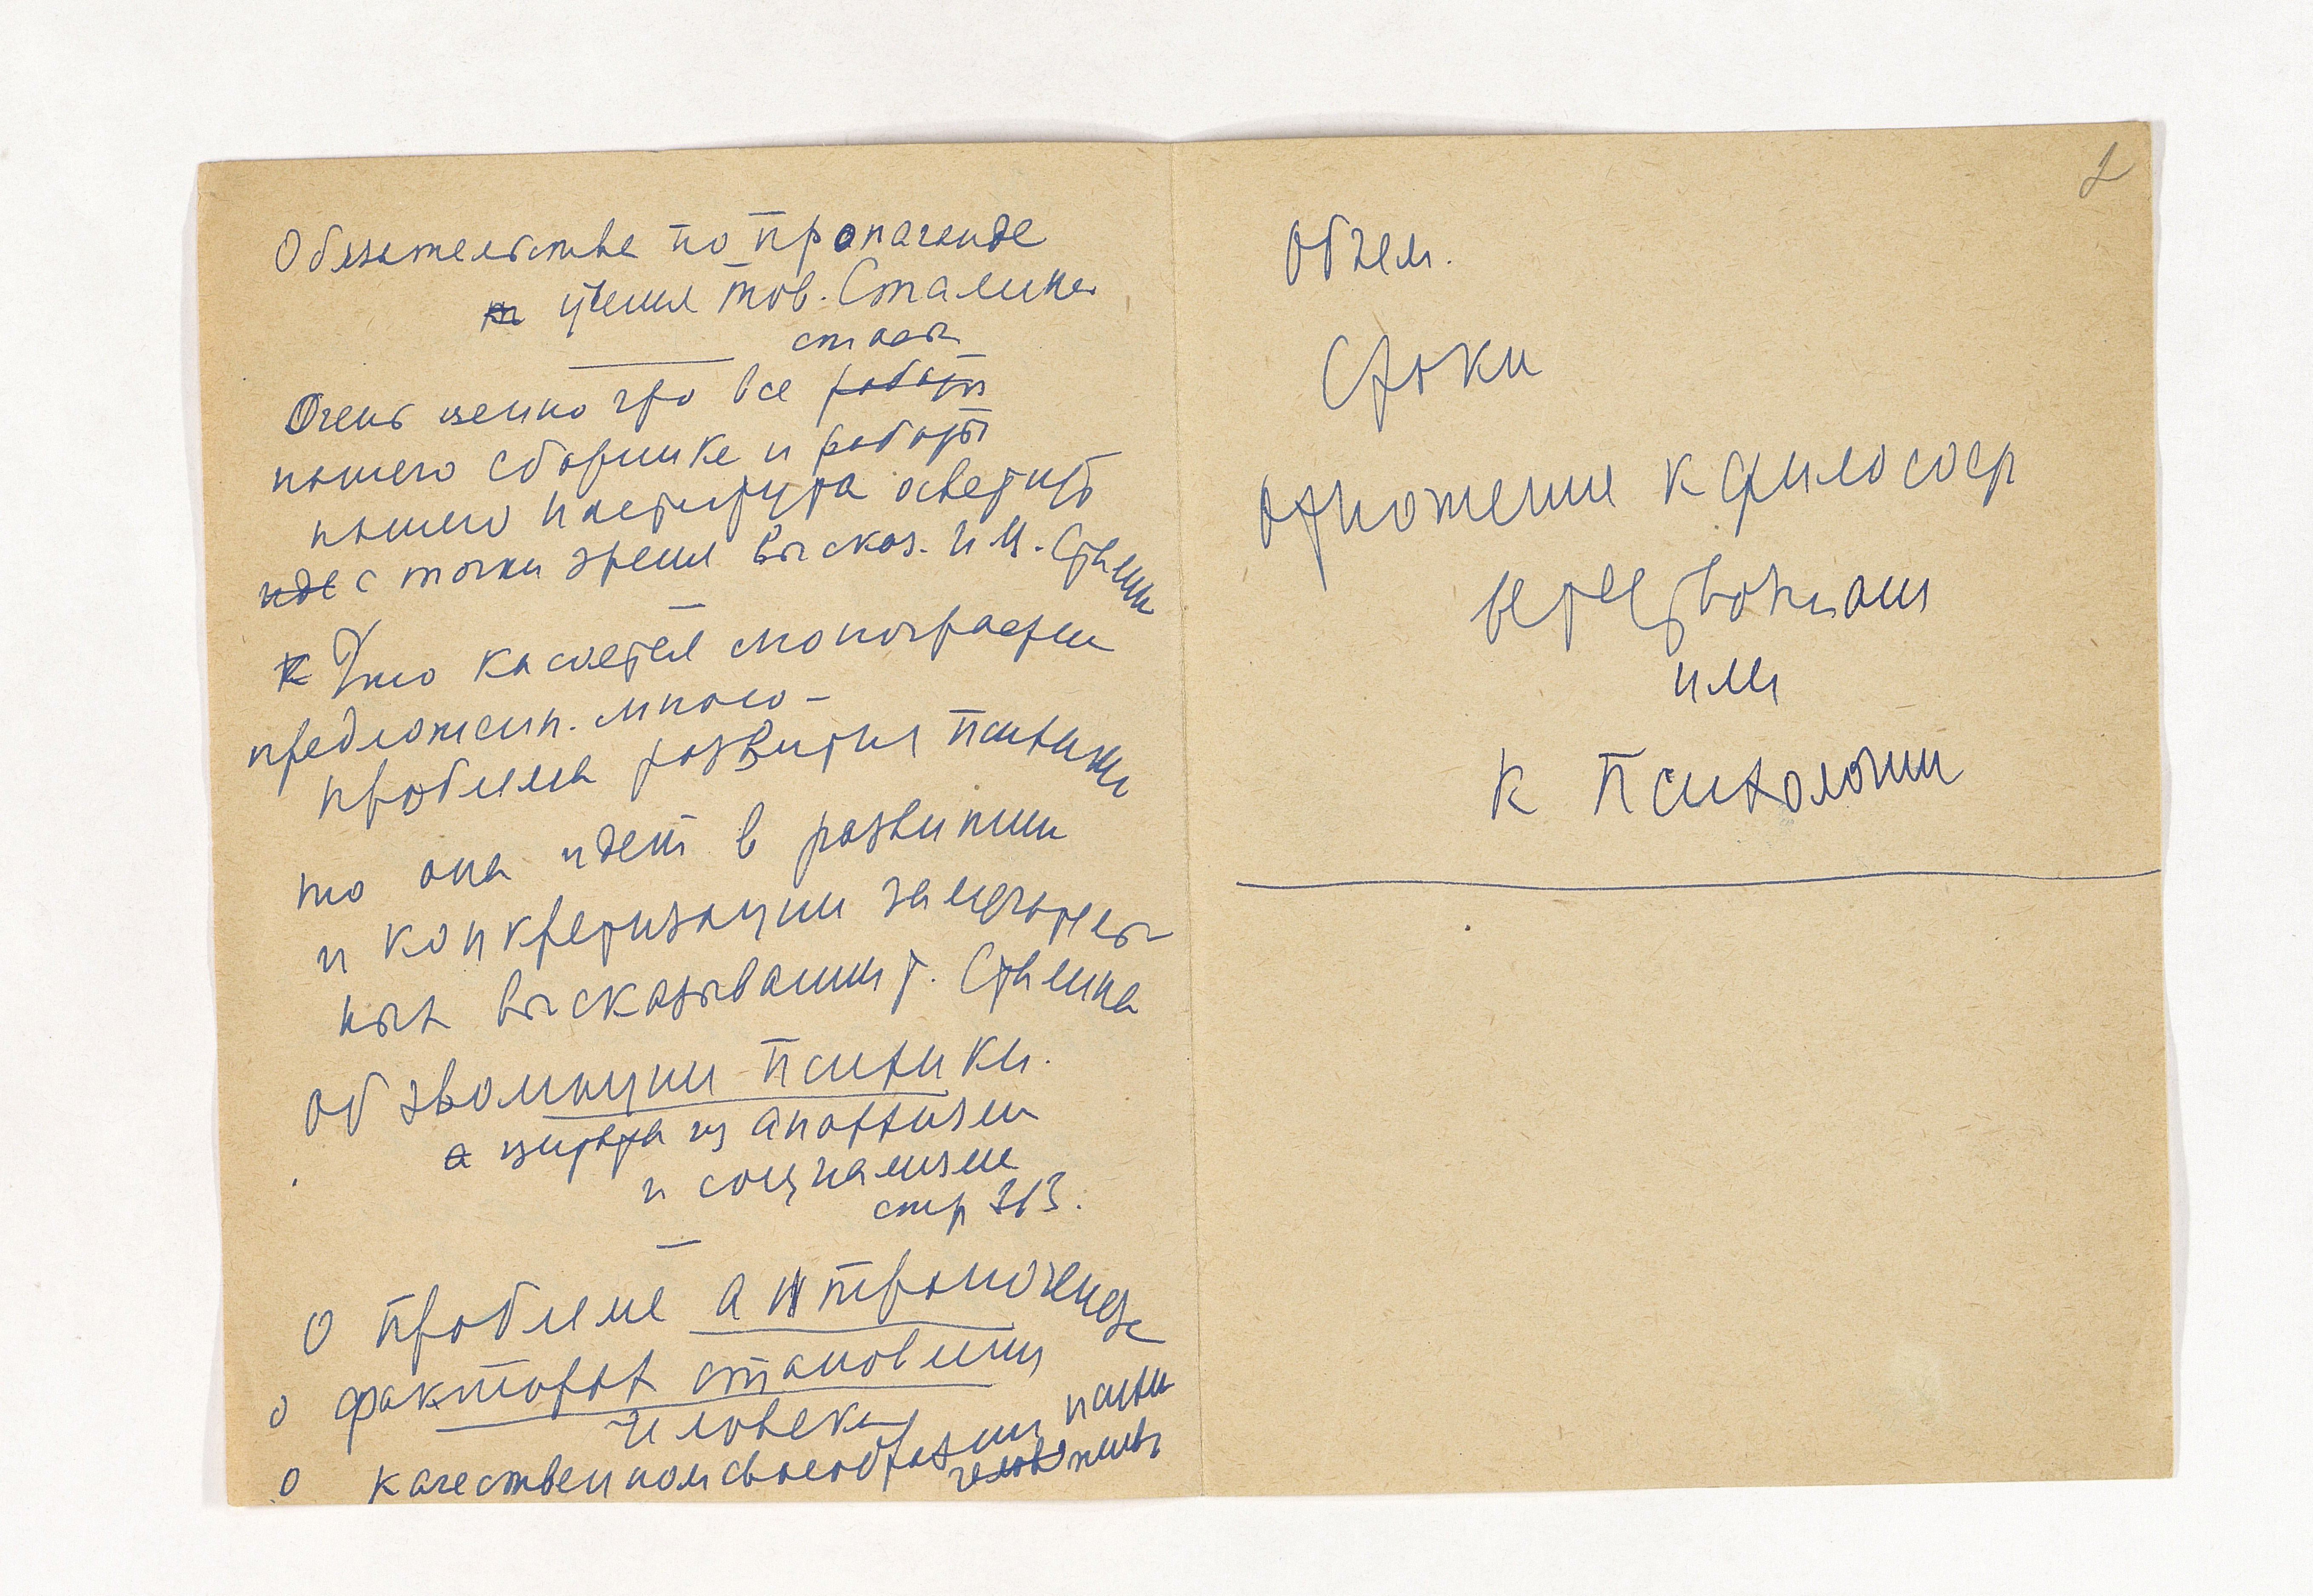 Обязательства по пропаганде
учения тов. Сталина
статьи
Очень ценно что все работы
нашего сборника и работы
нашего института осветить
иде с точки зрения высказ. И.В. Сталина
К Что касается монографии
предложен. мною –
проблема развития психики
то она идет в развитии
и конкретизации замечатель
ных высказываний т. Сталина
об эволюции психики.
а цитата из анархизм
и социализм
стр 313.
О проблеме антропогенеза
о факторах становления
человека
о качественном своеобразии психи
человек животн
2
Объем.
Сроки
отношение к философ
или
к психологии